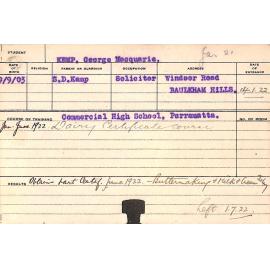 STUDENT
KEMP, George Macquarie.
Jan 21
DATE OF BIRTH RELIGION PARENT OR GUARDIAN OCCUPATION ADDRESS DATE OF ENTRANCE
9/9/03 S.D.Kemp Solicitor Windsor Road
BAULKHAM HILLS. 14.1.22
COURSE OF TRAINING Commercial High School, Parramatta. No. OF ROOM
Jan-June 1922 Dairy Certificate course
RESULTS Obtain Dairy Certif. June 1922 - Buttermaking & Milk & Cream
Left 1.7.22